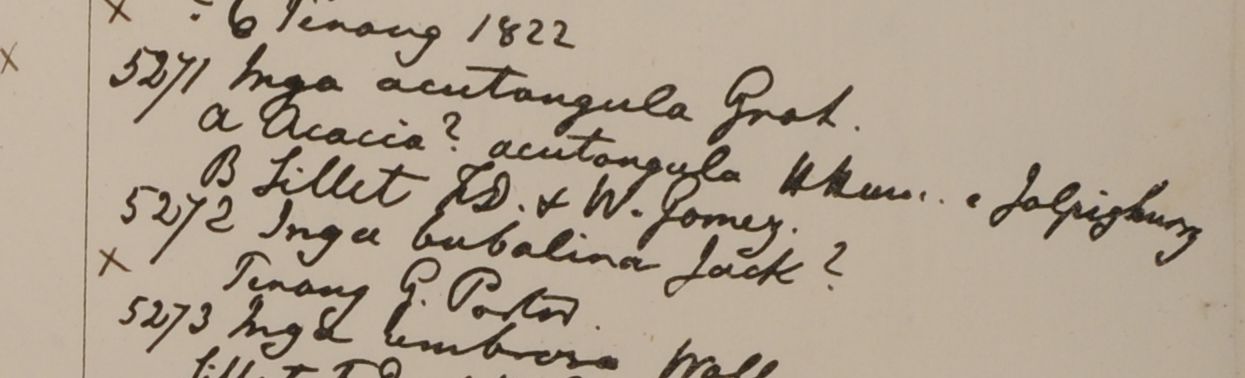 6 Penang 1822
5271 Inga acutangula Grah.
a Acacia? acutangula HHam. e Jolpighury
B Sillet F.D. & W. Gomez.
5272 Inga bubalina Jack?
Penang G. Porter.
5273 Inga umbrosa Wall
Sillet F.D.